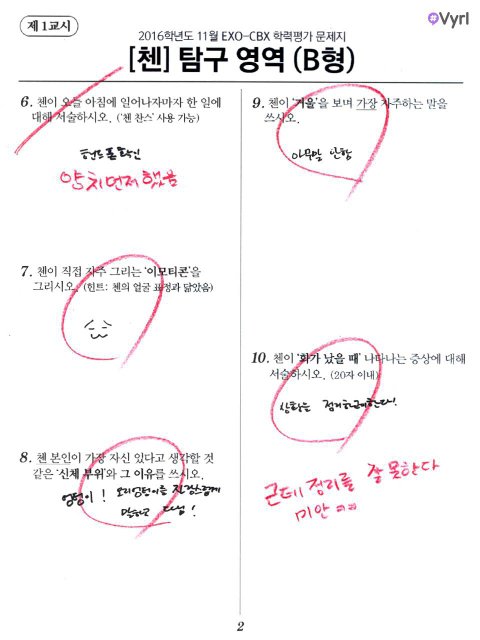 제 1 교시
Vyrl
2016학년도 11월 EXO-CBX 학력평가 문제지
[첸] 탐구 영역 (B형)
6. 첸이 오늘 아침에 일어나자마자 한 일에
대해 서술하시오. ('첸 찬스' 사용 가능)
핸드폰 확인
양치 먼저 했음
7. 첸이 직접 자주 그리는 '이모티콘'을
그리시오. (힌트: 첸의 얼굴 표정과 닮았음)
8. 첸 본인이 가장 자신 있다고 생각할 것
같은 '신체 부위'와 그 이유를 쓰시오.
엉덩이! 오리엉덩이를 자랑스럽게
말하고 다님!
9. 첸이 '거울'을 보며 가장 자주하는 말을
쓰시오.
아무말 안함
10. 첸이 '화가 났을 때' 나타나는 증상에 대해
서술하시오. (20자 이내)
상황을 정리하려한다!
근데 정리를 잘 못한다
미안 ㅋㅋ
2